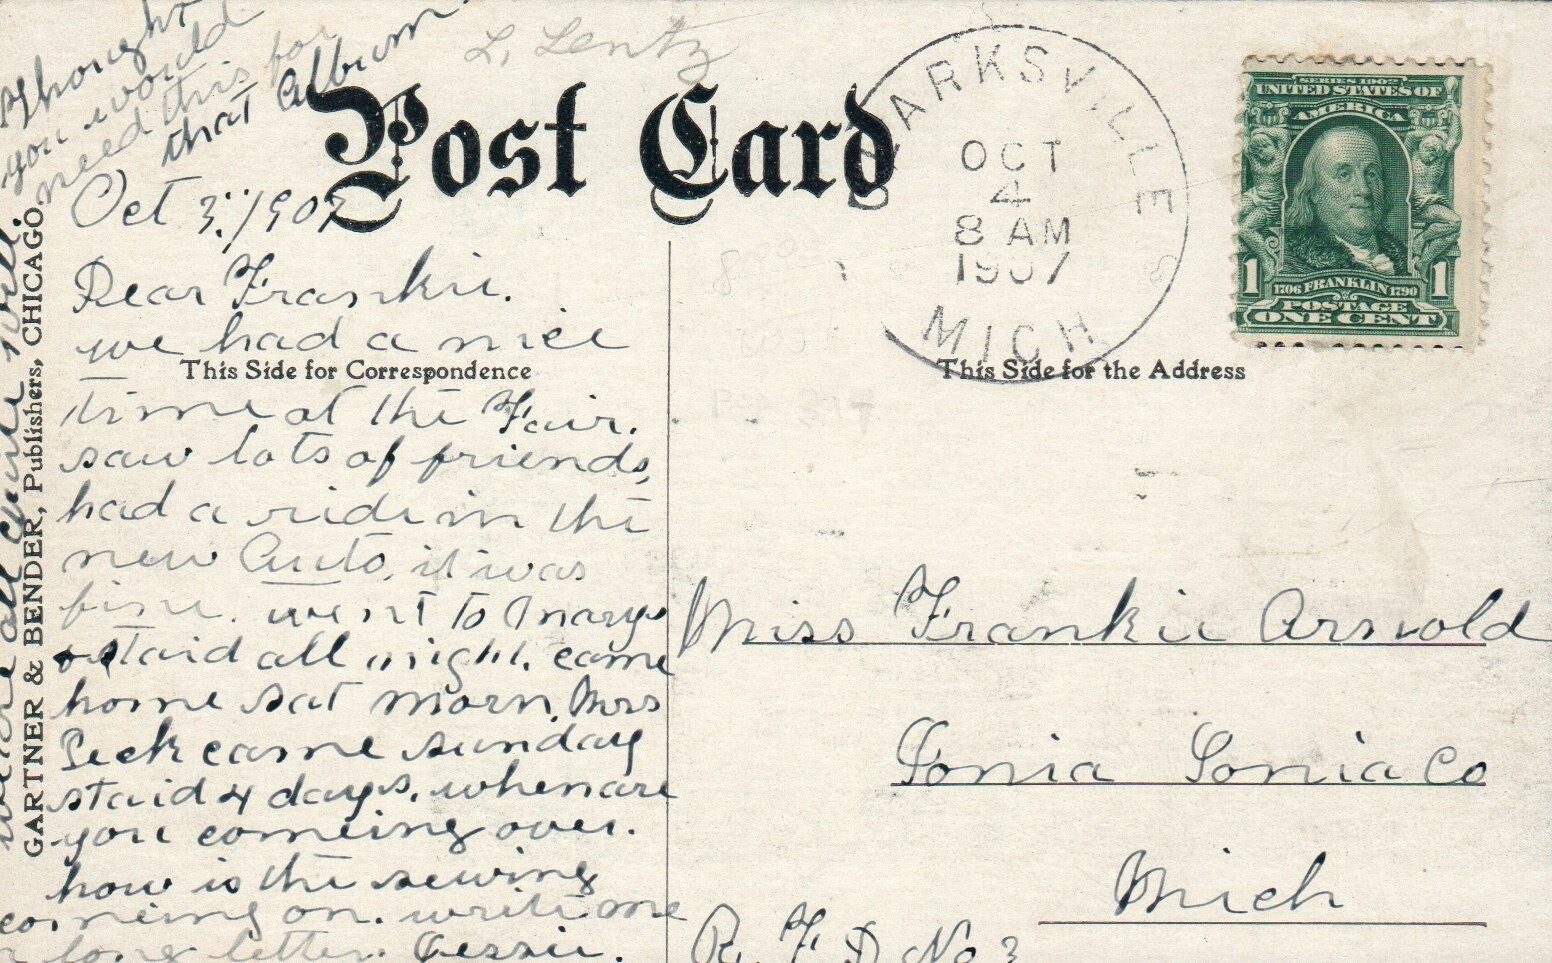 Thought
you would
need this for
that Album
L. Lentz
Post Card
CLARKSVILLE
OCT
4
8 AM
1907
MICH
SERIES 1902
UNITED STATES OF
AMERICA
1 1
1706 FRANKLIN 1790
POSTAGE
ONE CENT
Oct 3. 1907
Dear Frankie.
we had a nice
This Side for Correspondence
time at the Fair.
saw lots of friends,
had a ride in the
new Auto, it was
fine. went to Marys
staid all night. came
home sat morn. Mrs
Peck came sunday
staid 4 days. when are
you comeing over.
how is the sewing
comeing on. write me
a long letter. Jessie.
we are all quite well.
GARTNER & BENDER, Publishers, CHICAGO
This Side for the Address
Miss Frankie Arnold
Ionia Ionia Co
Mich
R. F. D No 3